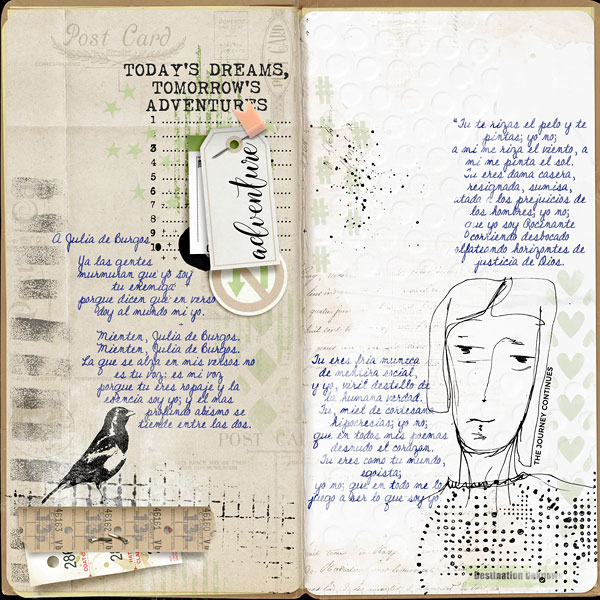 Post Card
TODAY'S DREAMS,
TOMORROW'S
ADVENTURES
1
3
4
5
6
7
8
9
10
adventure
A Julia de Burgos
Ya las gentes
murmuran que yo soy
tu enemiga
porque dicen que en verso
doy al mundo mi yo.
Mienten, Julia de Burgos.
Mienten, Julia de Burgos.
La que se alza en mis versos no
es tu voz: es mi voz
porque tu eres ropaje y la
esencia soy yo; y el mas
profundo abismo se
tiende entre las dos.
POST CARD
"Tu te rizas el pelo y te
pintas; yo no;
a mi me riza el viento, a
mi me pinta el sol.
Tu eres dama casera,
resignada, sumisa,
atada a los prejuicios de
los hombres; yo no;
que yo soy Rocinante
corriendo desbocado
olfateando horizontes de
justicia de Dios.
Tu eres fria muneca
de mentira social,
y yo, viril destello de
la humana verdad.
Tu, miel de cortesana
hipocresias; yo no;
que en todos mis poemas
desnudo el corazon.
Tu eres como tu mundo,
egoista;
yo no; que en todo me lo
juego a ser lo que soy yo.
THE JOURNEY CONTINUES
Destination